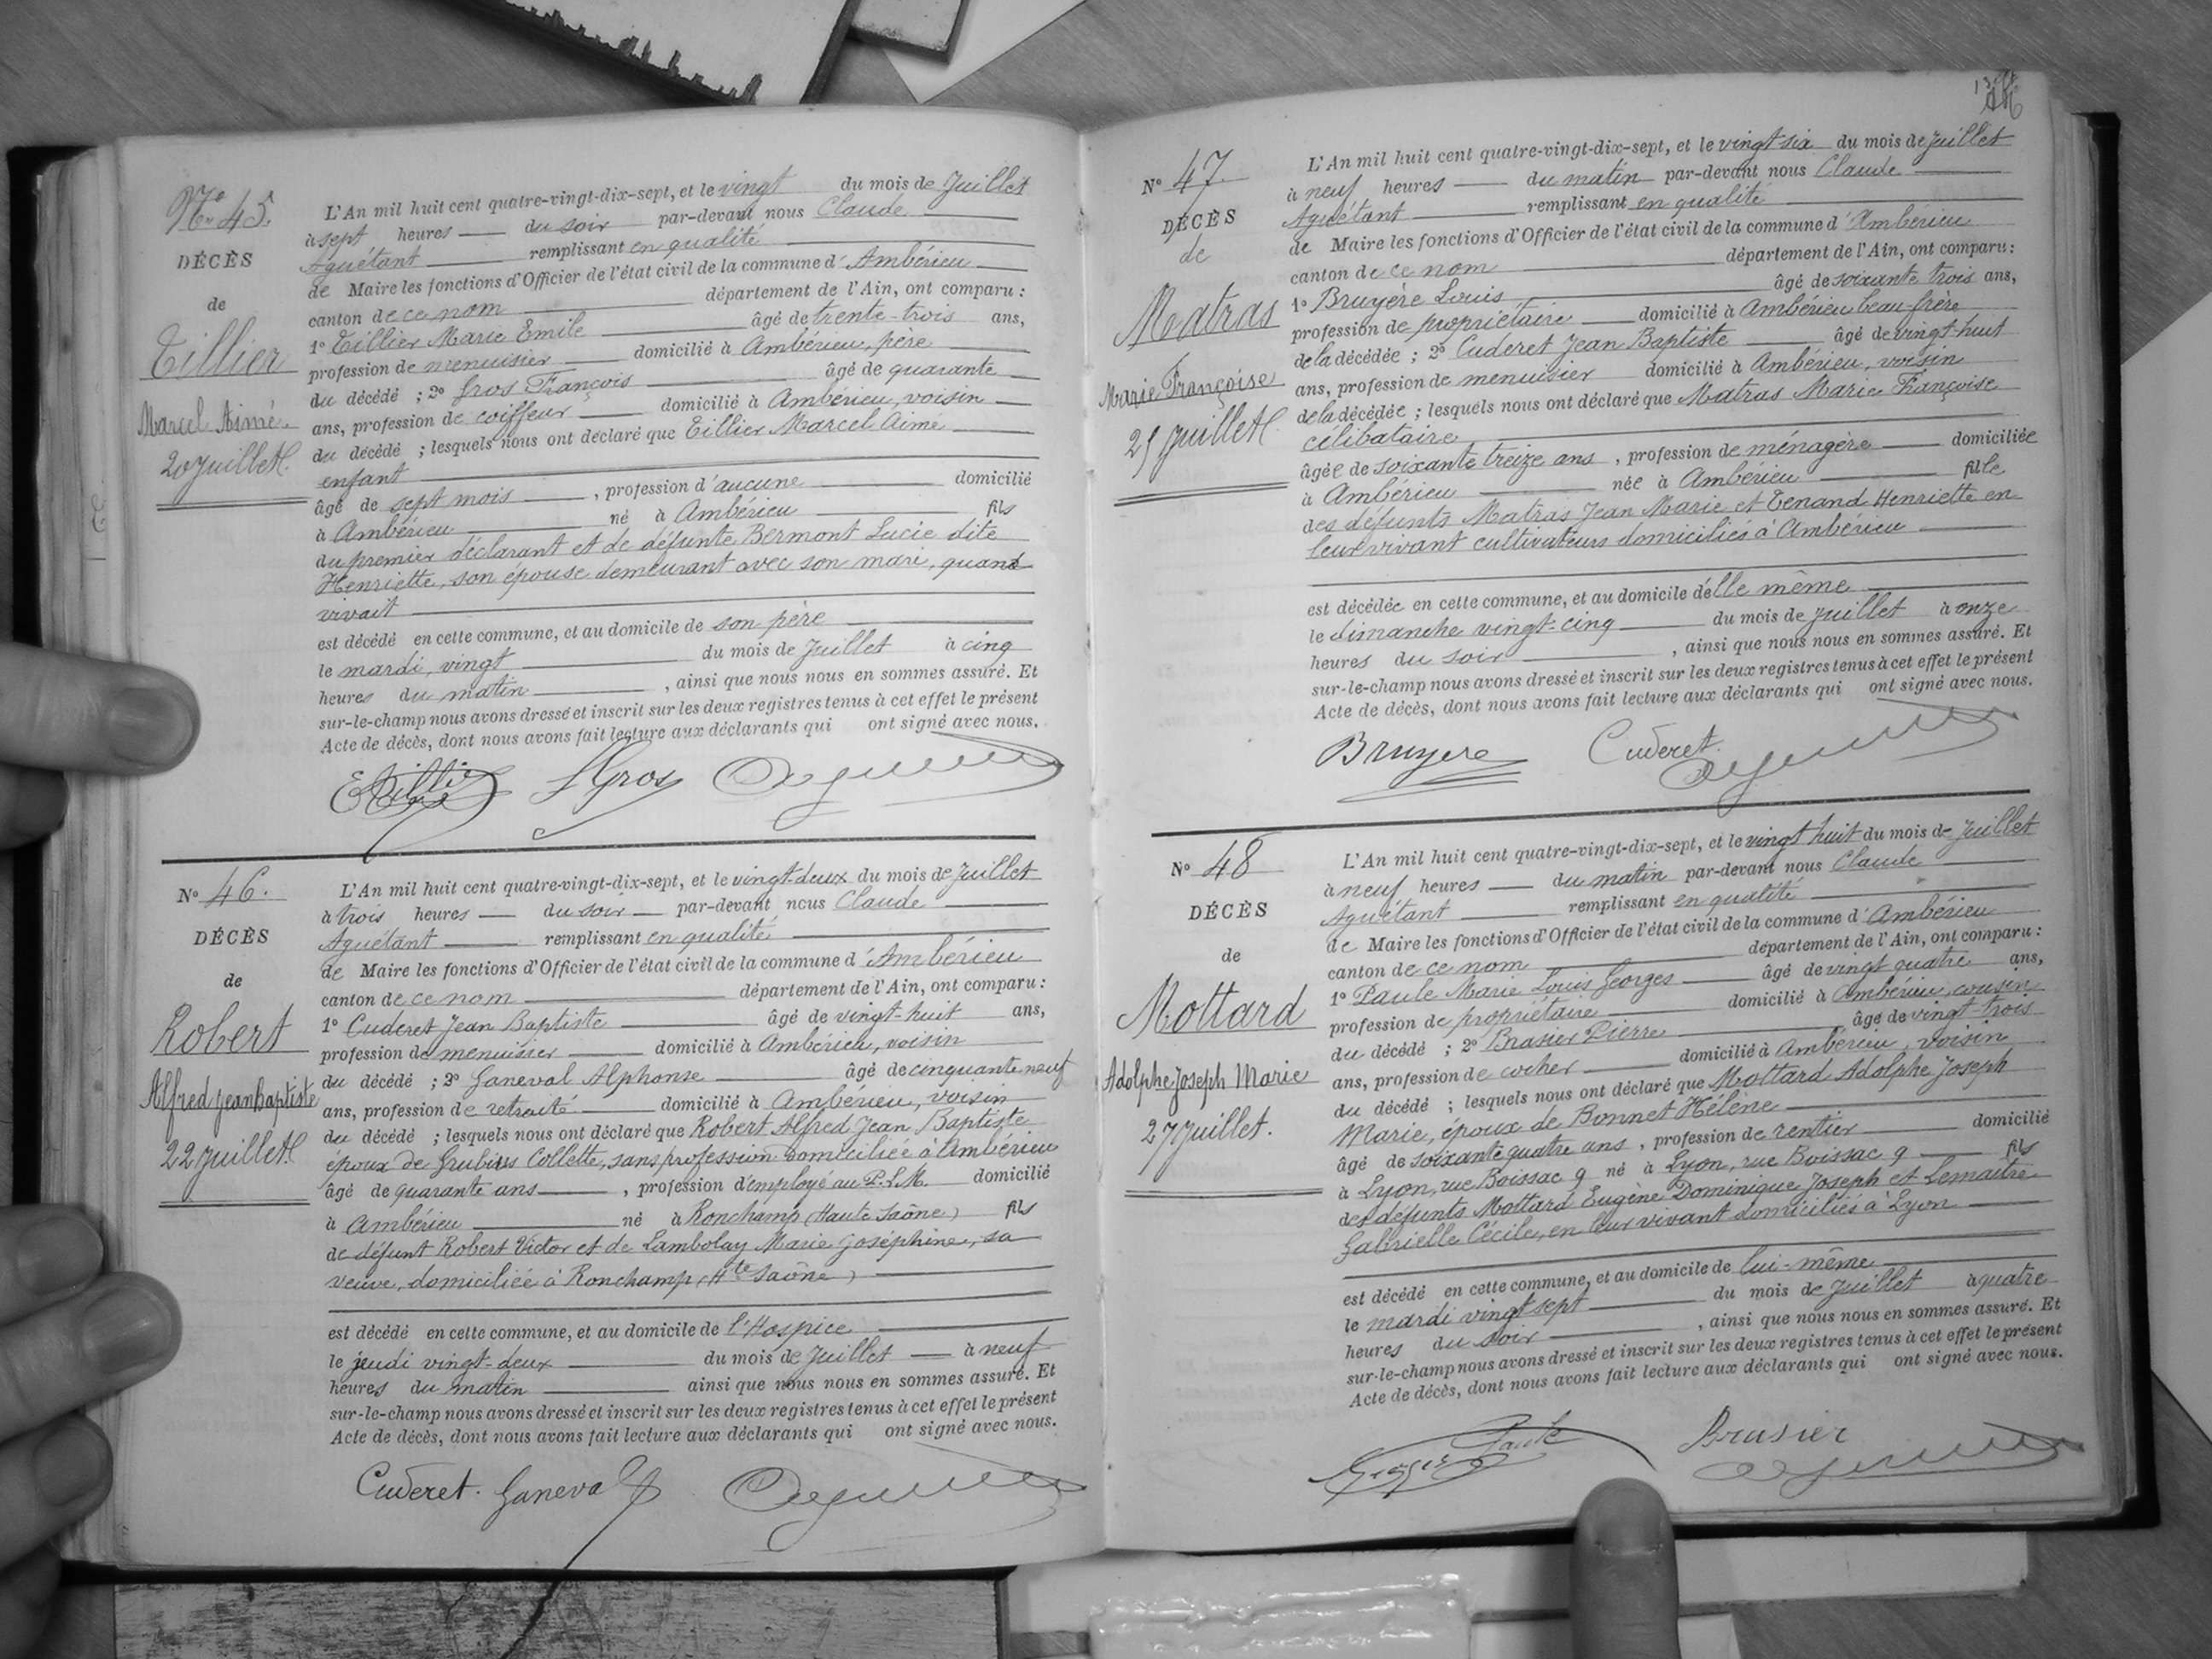 Nº 45.
DÉCÈS
de
Tillier
Marcel Aimé
20 Juillet.
L'An mil huit cent quatre-vingt-dix-sept, et le vingt du mois de Juillet
à sept heures du soir par-devant nous Claude
Aguétant remplissant en qualité
de Maire les fonctions d'Officier de l'état civil de la commune d'Ambérieu
canton de ce nom département de l'Ain, ont comparu :
1º Tillier Marie Emile âgé de trente-trois ans,
profession de menuisier domicilié à Ambérieu, père
du décédé ; 2º Gros François âgé de quarante
ans, profession de coiffeur domicilié à Ambérieu, voisin
du décédé ; lesquels nous ont déclaré que Tillier Marcel Aimé
enfant
âgé de sept mois , profession d'aucune domicilié
à Ambérieu né à Ambérieu fils
du premier déclarant et de défunte Bermont Lucie dite
Henriette, son épouse demeurant avec son mari, quand
vivait
est décédé en cette commune, et au domicile de son père
le mardi, vingt du mois de Juillet à cinq
heures du matin , ainsi que nous nous en sommes assuré. Et
sur-le-champ nous avons dressé et inscrit sur les deux registres tenus à cet effet le présent
Acte de décès, dont nous avons fait lecture aux déclarants qui ont signé avec nous.
E Tillier F Gros
Nº 46.
DÉCÈS
de
Robert
Alfred Jean Baptiste
22 Juillet.
L'An mil huit cent quatre-vingt-dix-sept, et le vingt-deux du mois de Juillet
à trois heures du soir par-devant nous Claude
Aguétant remplissant en qualité
de Maire les fonctions d'Officier de l'état civil de la commune d'Ambérieu
canton de ce nom département de l'Ain, ont comparu :
1º Cuderet Jean Baptiste âgé de vingt-huit ans,
profession de menuisier domicilié à Ambérieu, voisin
du décédé ; 2º Ganeval Alphonse âgé de cinquante neuf
ans, profession de retraité domicilié à Ambérieu, voisin
du décédé ; lesquels nous ont déclaré que Robert Alfred Jean Baptiste
époux de Collette, sans profession domiciliée à Ambérieu
âgé de quarante ans , profession d'employé au P.L.M. domicilié
à Ambérieu né à Ronchamp (Haute Saône) fils
de défunt Robert Victor et de Lambolay Marie Joséphine, sa
veuve, domiciliée à Ronchamp (Hte Saône)
est décédé en cette commune, et au domicile de l'Hospice
le jeudi vingt-deux du mois de Juillet à neuf
heures du matin ainsi que nous nous en sommes assuré. Et
sur-le-champ nous avons dressé et inscrit sur les deux registres tenus à cet effet le présent
Acte de décès, dont nous avons fait lecture aux déclarants qui ont signé avec nous.
Cuderet. Ganeval
Nº 47.
DÉCÈS
de
Matras
Marie Françoise
25 Juillet.
L'An mil huit cent quatre-vingt-dix-sept, et le vingt six du mois de Juillet
à neuf heures du matin par-devant nous Claude
Aguétant remplissant en qualité
de Maire les fonctions d'Officier de l'état civil de la commune d'Ambérieu
canton de ce nom département de l'Ain, ont comparu :
1º Bruyère Louis âgé de soixante trois ans,
profession de propriétaire domicilié à Ambérieu beau-frère
de la décédée ; 2º Cuderet Jean Baptiste âgé de vingt-huit
ans, profession de menuisier domicilié à Ambérieu, voisin
de la décédée ; lesquels nous ont déclaré que Matras Marie Françoise
célibataire
âgée de soixante treize ans , profession de ménagère domiciliée
à Ambérieu née à Ambérieu fille
des défunts Matras Jean Marie et Tenand Henriette en
leur vivant cultivateurs domiciliés à Ambérieu
est décédée en cette commune, et au domicile d'elle même
le dimanche vingt-cinq du mois de Juillet à onze
heures du soir , ainsi que nous nous en sommes assuré. Et
sur-le-champ nous avons dressé et inscrit sur les deux registres tenus à cet effet le présent
Acte de décès, dont nous avons fait lecture aux déclarants qui ont signé avec nous.
Bruyere Cuderet.
Nº 48
DÉCÈS
de
Mottard
Adolphe Joseph Marie
27 Juillet.
L'An mil huit cent quatre-vingt-dix-sept, et le vingt huit du mois de Juillet
à neuf heures du matin par-devant nous Claude
Aguétant remplissant en qualité
de Maire les fonctions d'Officier de l'état civil de la commune d'Ambérieu
canton de ce nom département de l'Ain, ont comparu :
1º Paule Marie Louis Georges âgé de vingt quatre ans,
profession de propriétaire domicilié à Ambérieu, cousin
du décédé ; 2º Brasier Pierre âgé de vingt-trois
ans, profession de cocher domicilié à Ambérieu, voisin
du décédé ; lesquels nous ont déclaré que Mottard Adolphe Joseph
Marie, époux de Bonnet Hélène
âgé de soixante quatre ans , profession de rentier domicilié
à Lyon, rue Boissac 9 né à Lyon, rue Boissac 9 fils
des défunts Mottard Eugène Dominique Joseph et Lemaitre
Gabrielle Cécile, en leur vivant domiciliés à Lyon
est décédé en cette commune, et au domicile de lui-même
le mardi vingt sept du mois de Juillet à quatre
heures du soir , ainsi que nous nous en sommes assuré. Et
sur-le-champ nous avons dressé et inscrit sur les deux registres tenus à cet effet le présent
Acte de décès, dont nous avons fait lecture aux déclarants qui ont signé avec nous.
Paule Brasier